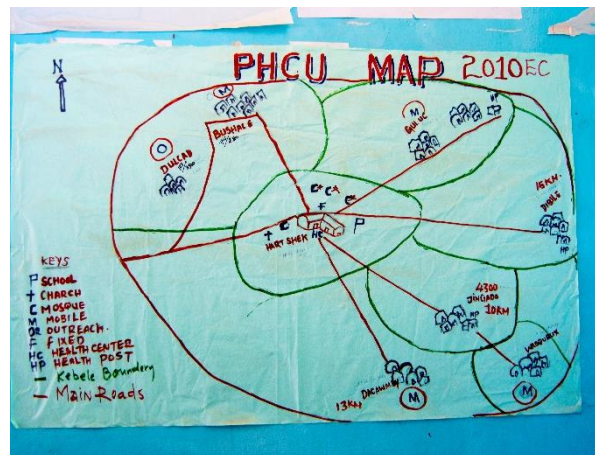 PHCU MAP 2010EC
N
M
BUSHACE
O
DULCAD
M
GULUC
HP
15KM.
DIBILE
HP
F
P
HART SHEK
HC
4300
JINGIADO
10KM
HP
DACAWALEY
13KM
M
M
KEYS
P SCHOOL
+ CHARCH
C MOSQUE
M MOBILE
OR OUTREACH.
F FIXED
HC HEALTH CENTER
HP HEALTH POST
— Kebele Boundery
— Main Roads